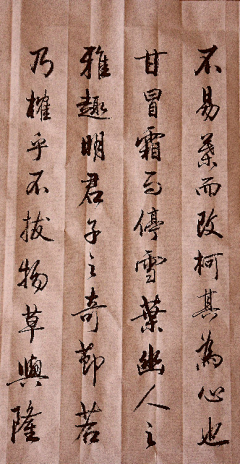 不易葉而改柯其為心也
甘冒霜而停雪葉幽人之
雅趣明君子之奇節若
乃榷乎不拔物莫與隆